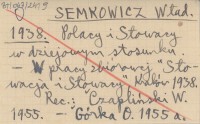 SEMKOWICZ Wład.
1938. Polacy i Słowacy
w dziejowym stosunku
— W pracy zbiorowej "Sło-
wacja i Słowacy" Kraków 1938.
Rec.: "Czapliński W.
1955. — Górka O. 1955 a.